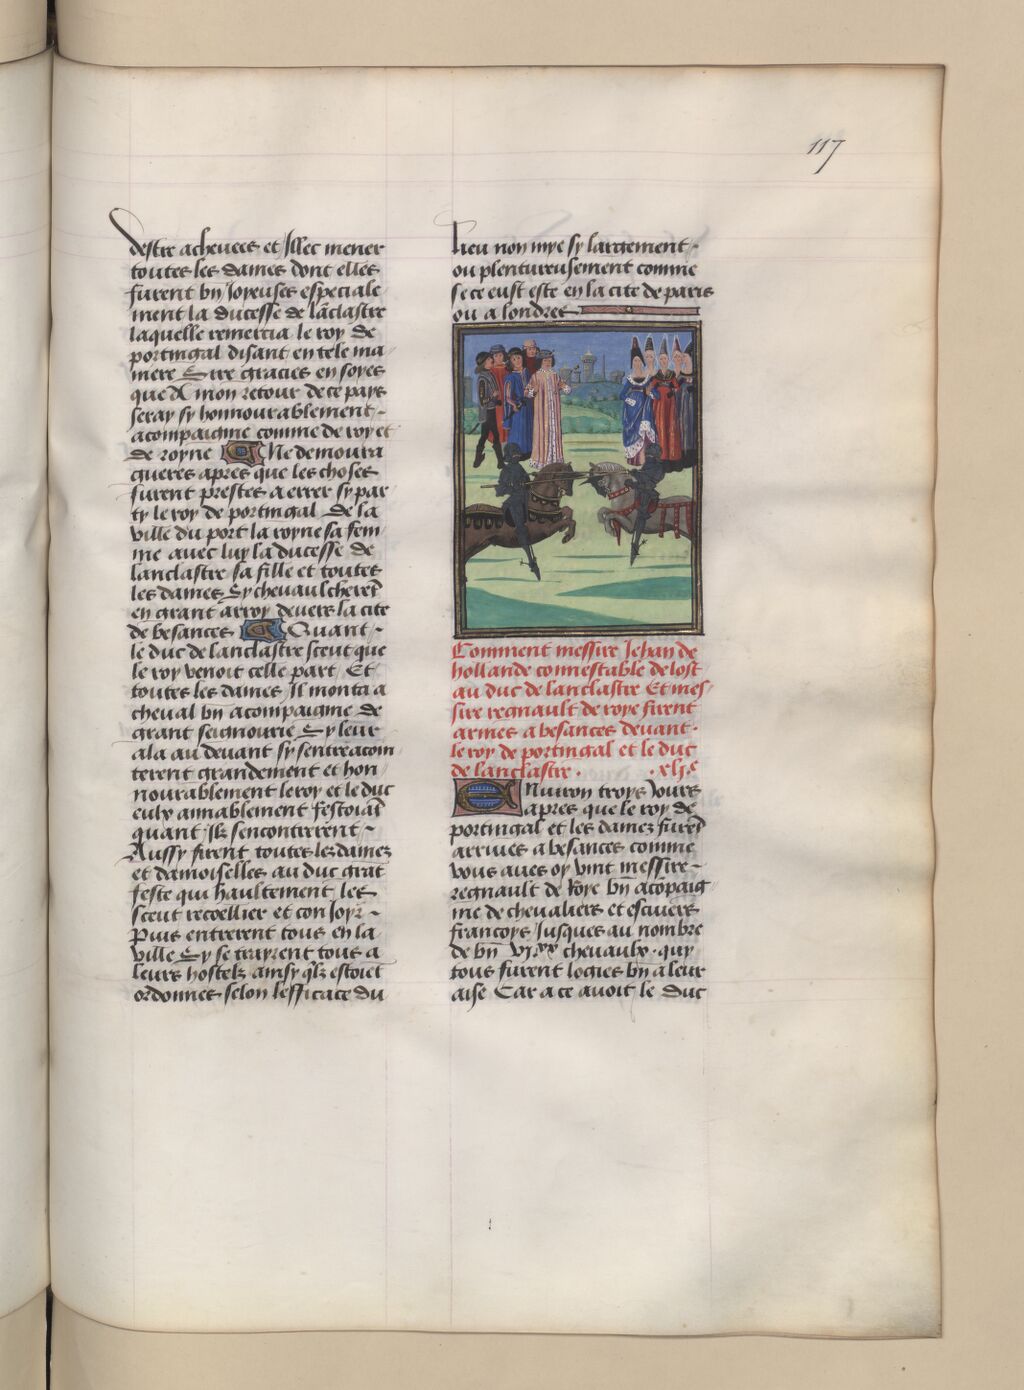 117
destre acheuees et Illec mener
toutes les dames dont elles
furent bn Joyeuses especiale
ment la ducesse de lãclastre
laquelle remercia le roy de
portingal disant en tele ma
niere Sire gracies en soyes
que A mon retour de ce pays
seray sy honnourablement
acompaignie comme de roy et
de royne Ne demoura
gueres apres que les choses
furent prestes a errer sy par
ty le roy de portingal de la
ville du port la royne sa fem
me auec luy la ducesse de
lanclastre sa fille et toutes
les dames Sy cheuaulcherẽt
en grant arroy deuers la cite
de besances Quant
le duc de lanclastre sceut que
le roy venoit celle part Et
toutes les dames Il monta a
cheual bn acompaignie de
grant seignourie Sy leur
ala au deuant sy sentreacoin
terent grandement et hon
nourablement le roy et le duc
eulx amablement festoiãt
quant Ilz sencontrerent
Aussy firent toutes lez dames
et damoiselles au duc grãt
feste qui haultement les
sceut recoellier et con Joyr
Puis entrerent tous en la
ville Sy se trayrent tous a
leurs hostelz ainsy qlz estoiẽt
ordonnes selon lefficace du
lieu non mye sy largement
ou plentureusement comme
se ce eust este en la cite de paris
ou a londres
Comment messire Jehan de
hollande connestable de lost
au duc de lanclastre Et mes
sire regnault de roye firent
armes a besances deuant
le roy de portingal et le duc
de lanclastre . .xlj.e
Nuiron troys Jours
apres que le roy de
portingal et les damez furẽt
arriues a besances comme
vous aues oy vint messire
regnault de Roye bn acõpaig
nie de cheualiers et escuiers
francoys Jusques au nombre
de bn VI.xx cheuaulx . quy
tous furent logies bn a leur
aise Car a ce auoit le duc